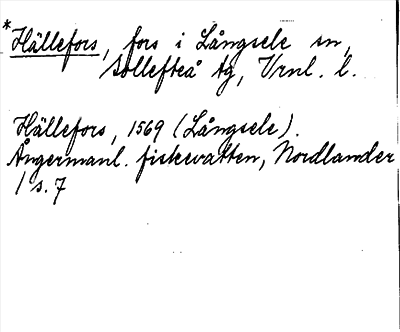 *Hällefors, fors i Långsele sn,
Sollefteå tg, Vrnl. l.
Hällefors, 1569 (Långsele).
Ångermanl. fiskevatten, Nordlander
1 s. 7